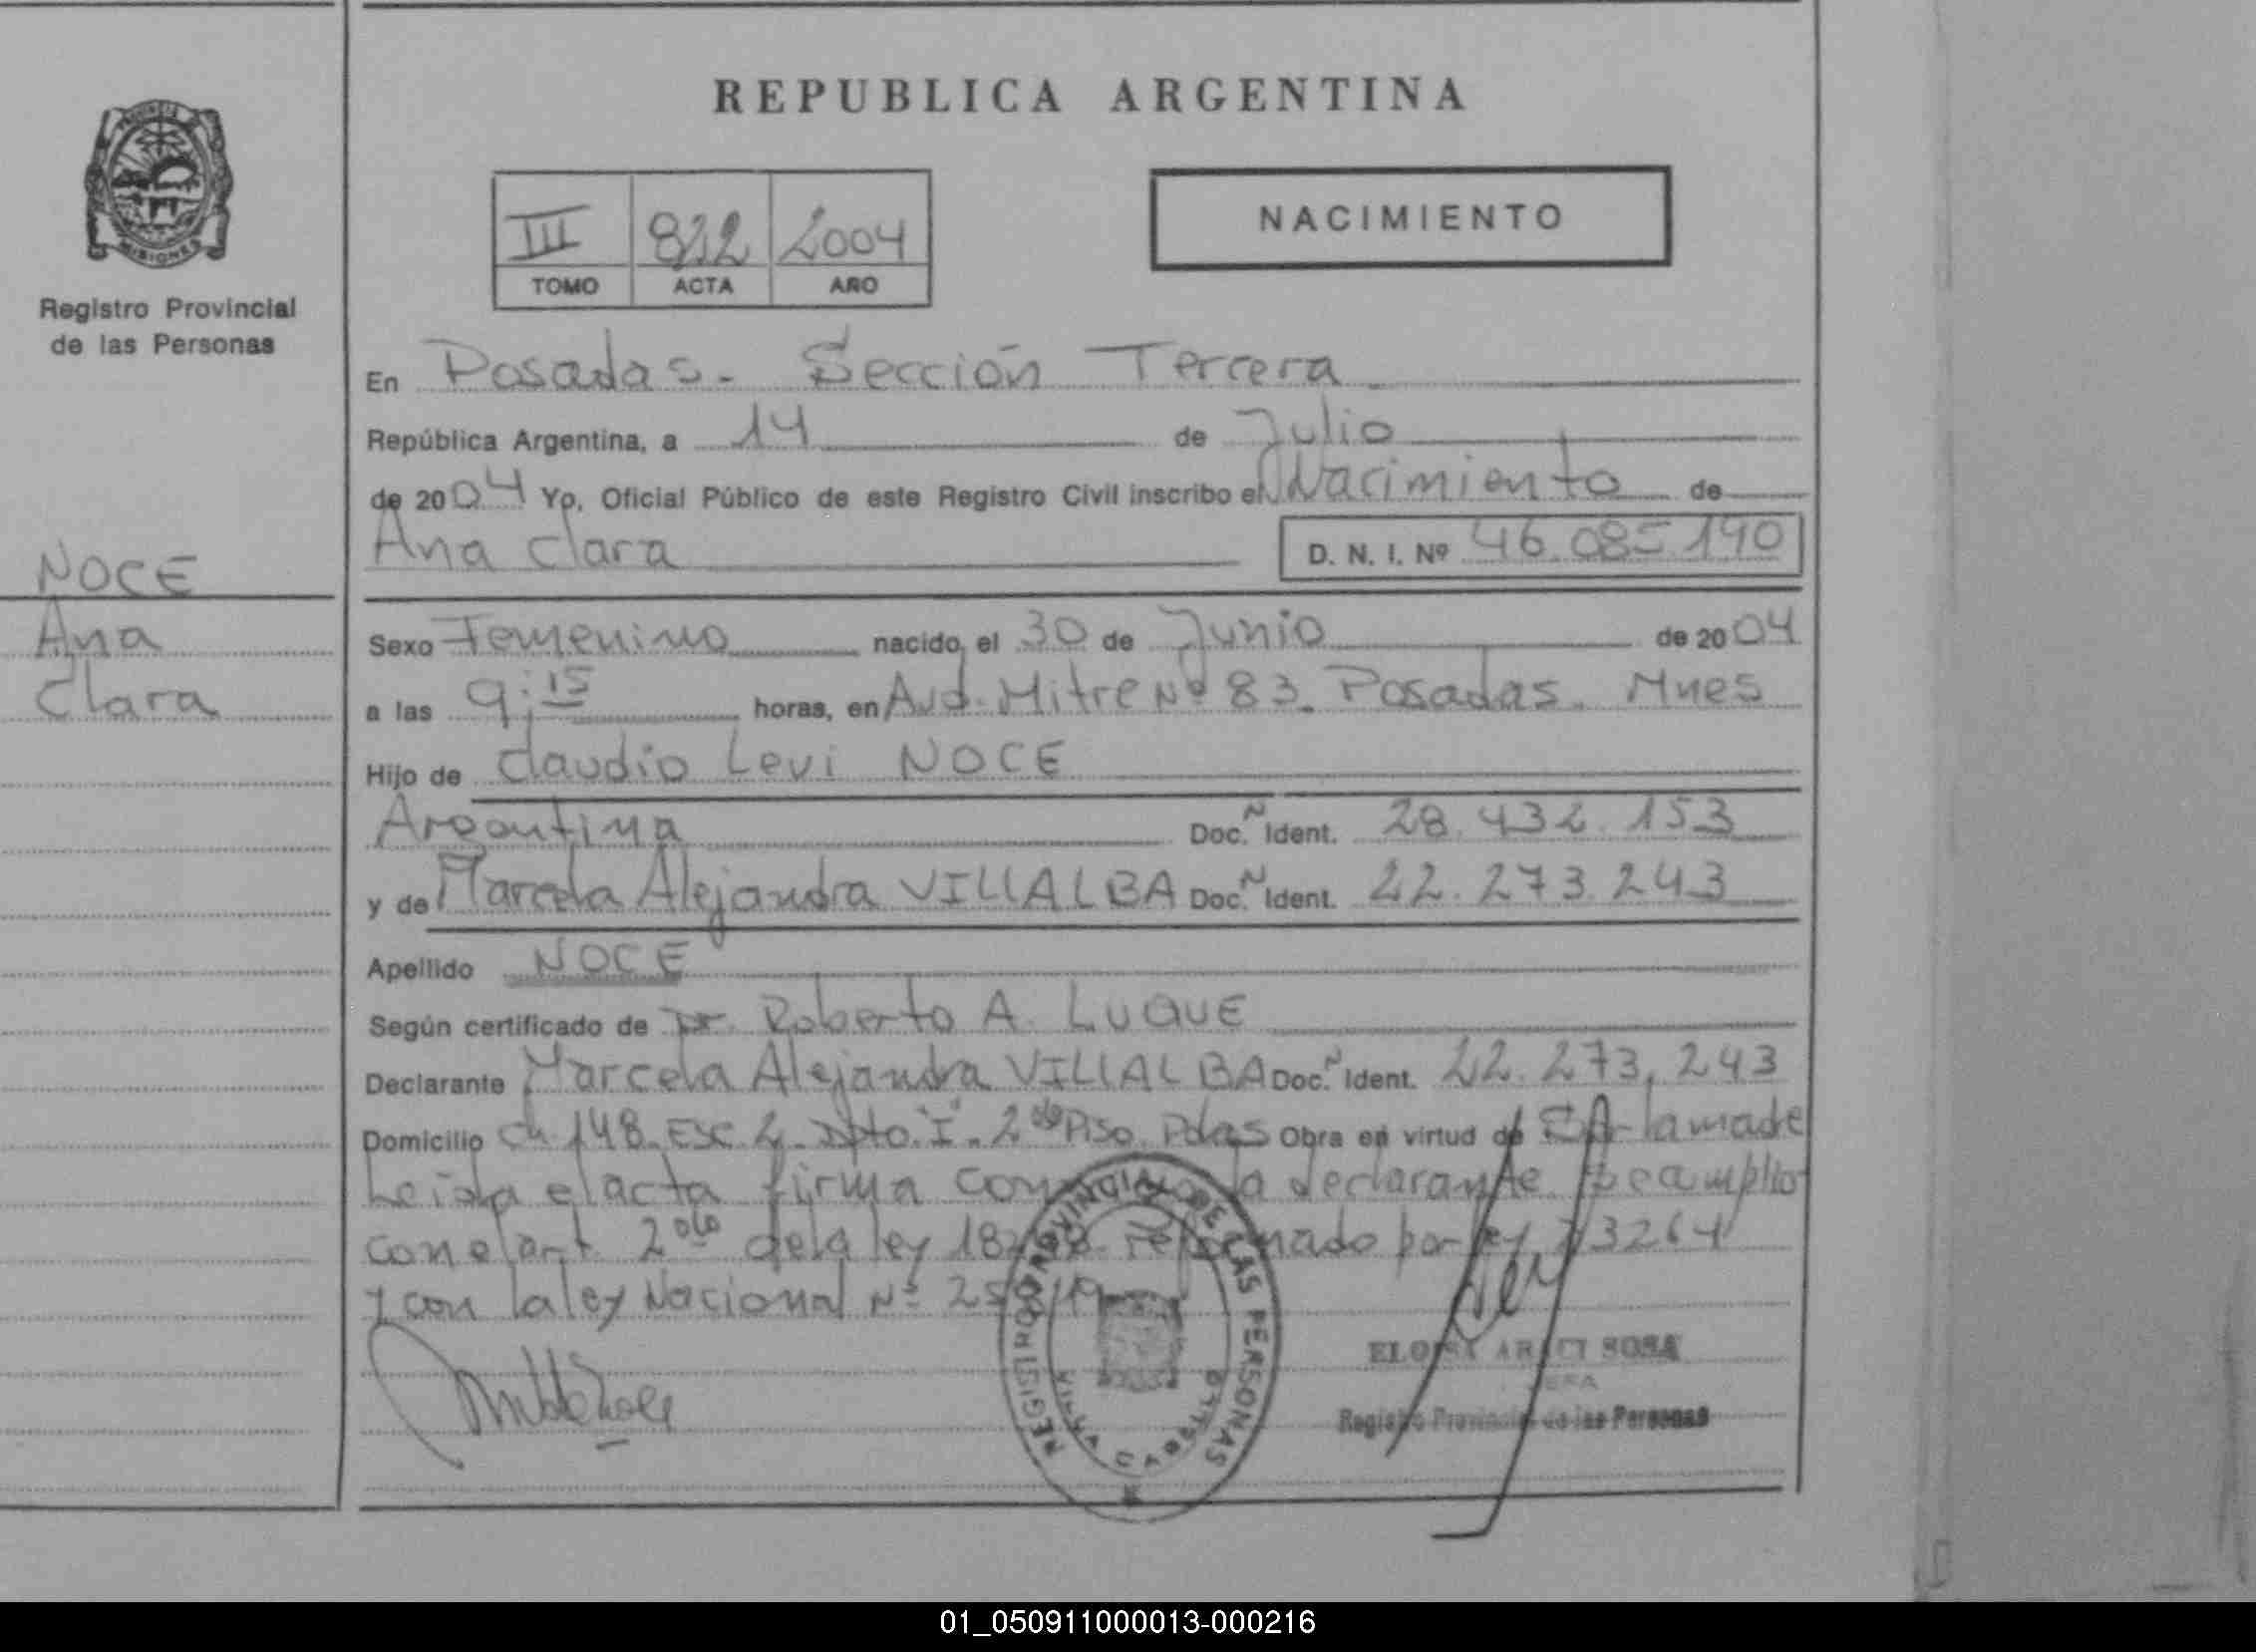 REPUBLICA ARGENTINA
PROVINCIA
MISIONES
Registro Provincial
de las Personas
NACIMIENTO
III 822 2004
TOMO ACTA AÑO
En Posadas. Sección Tercera
República Argentina, a 14 de Julio
de 2004 Yo, Oficial Público de este Registro Civil inscribo el Nacimiento de
Ana Clara D. N. I. Nº 46.085.190
NOCE
Ana
Clara
Sexo Femenino nacido el 30 de Junio de 2004
a las 9:15 horas, en Avd. Mitre Nº 83. Posadas. Mnes
Hijo de Claudio Levi NOCE
Argentina Doc. Ñ Ident. 28.432.153
y de Marcela Alejandra VILLALBA Doc. Ñ Ident. 22.273.243
Apellido NOCE
Según certificado de Dr. Roberto A. LUQUE
Declarante Marcela Alejandra VILLALBA Doc. Ñ Ident. 22.273.243
Domicilio Ch 148. Esc. 2. Dpto. "I". 2do Piso. Pdas Obra en virtud de la madre
Leida el acta firma la declarante. Se cumplio
con el art. 2do de la ley por ley 23264
y con la ley Nacional Nº
REGISTRO PROVINCIAL DE LAS PERSONAS
VILLA CABELLO
ELOISA ARACI SOSA
JEFA
Registro Provincial de las Personas
01_050911000013-000216